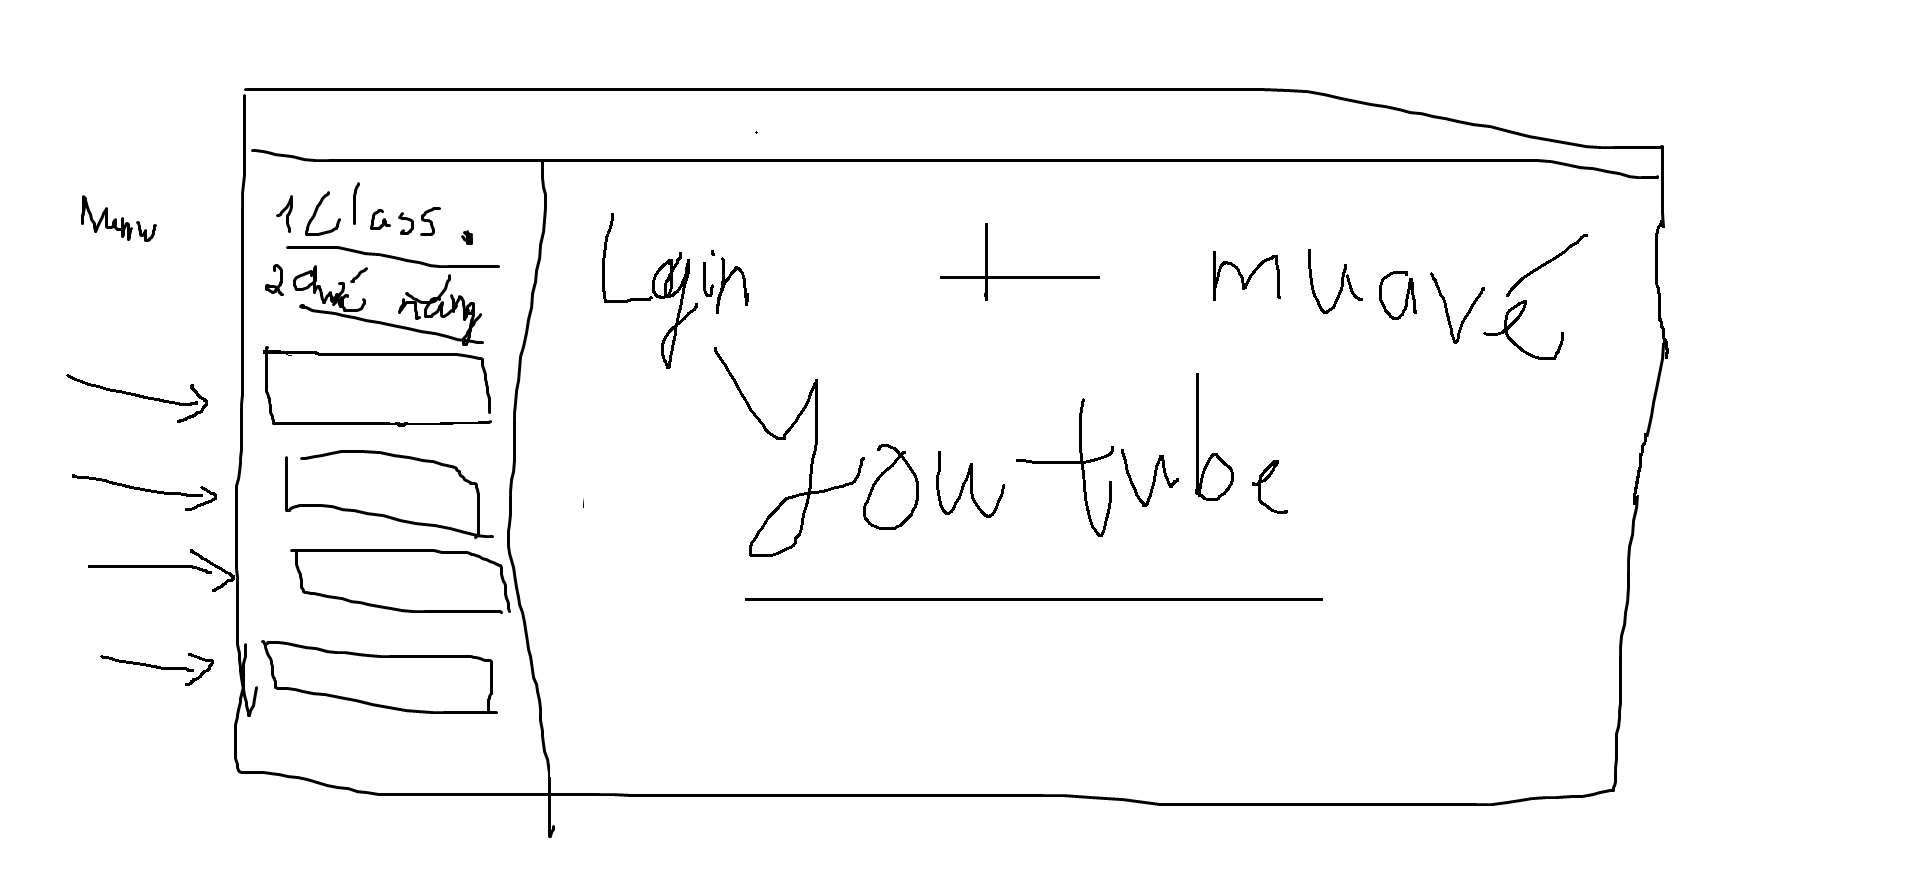 Menu
1 Class.
2 Chức năng
Login + mua vé
Youtube